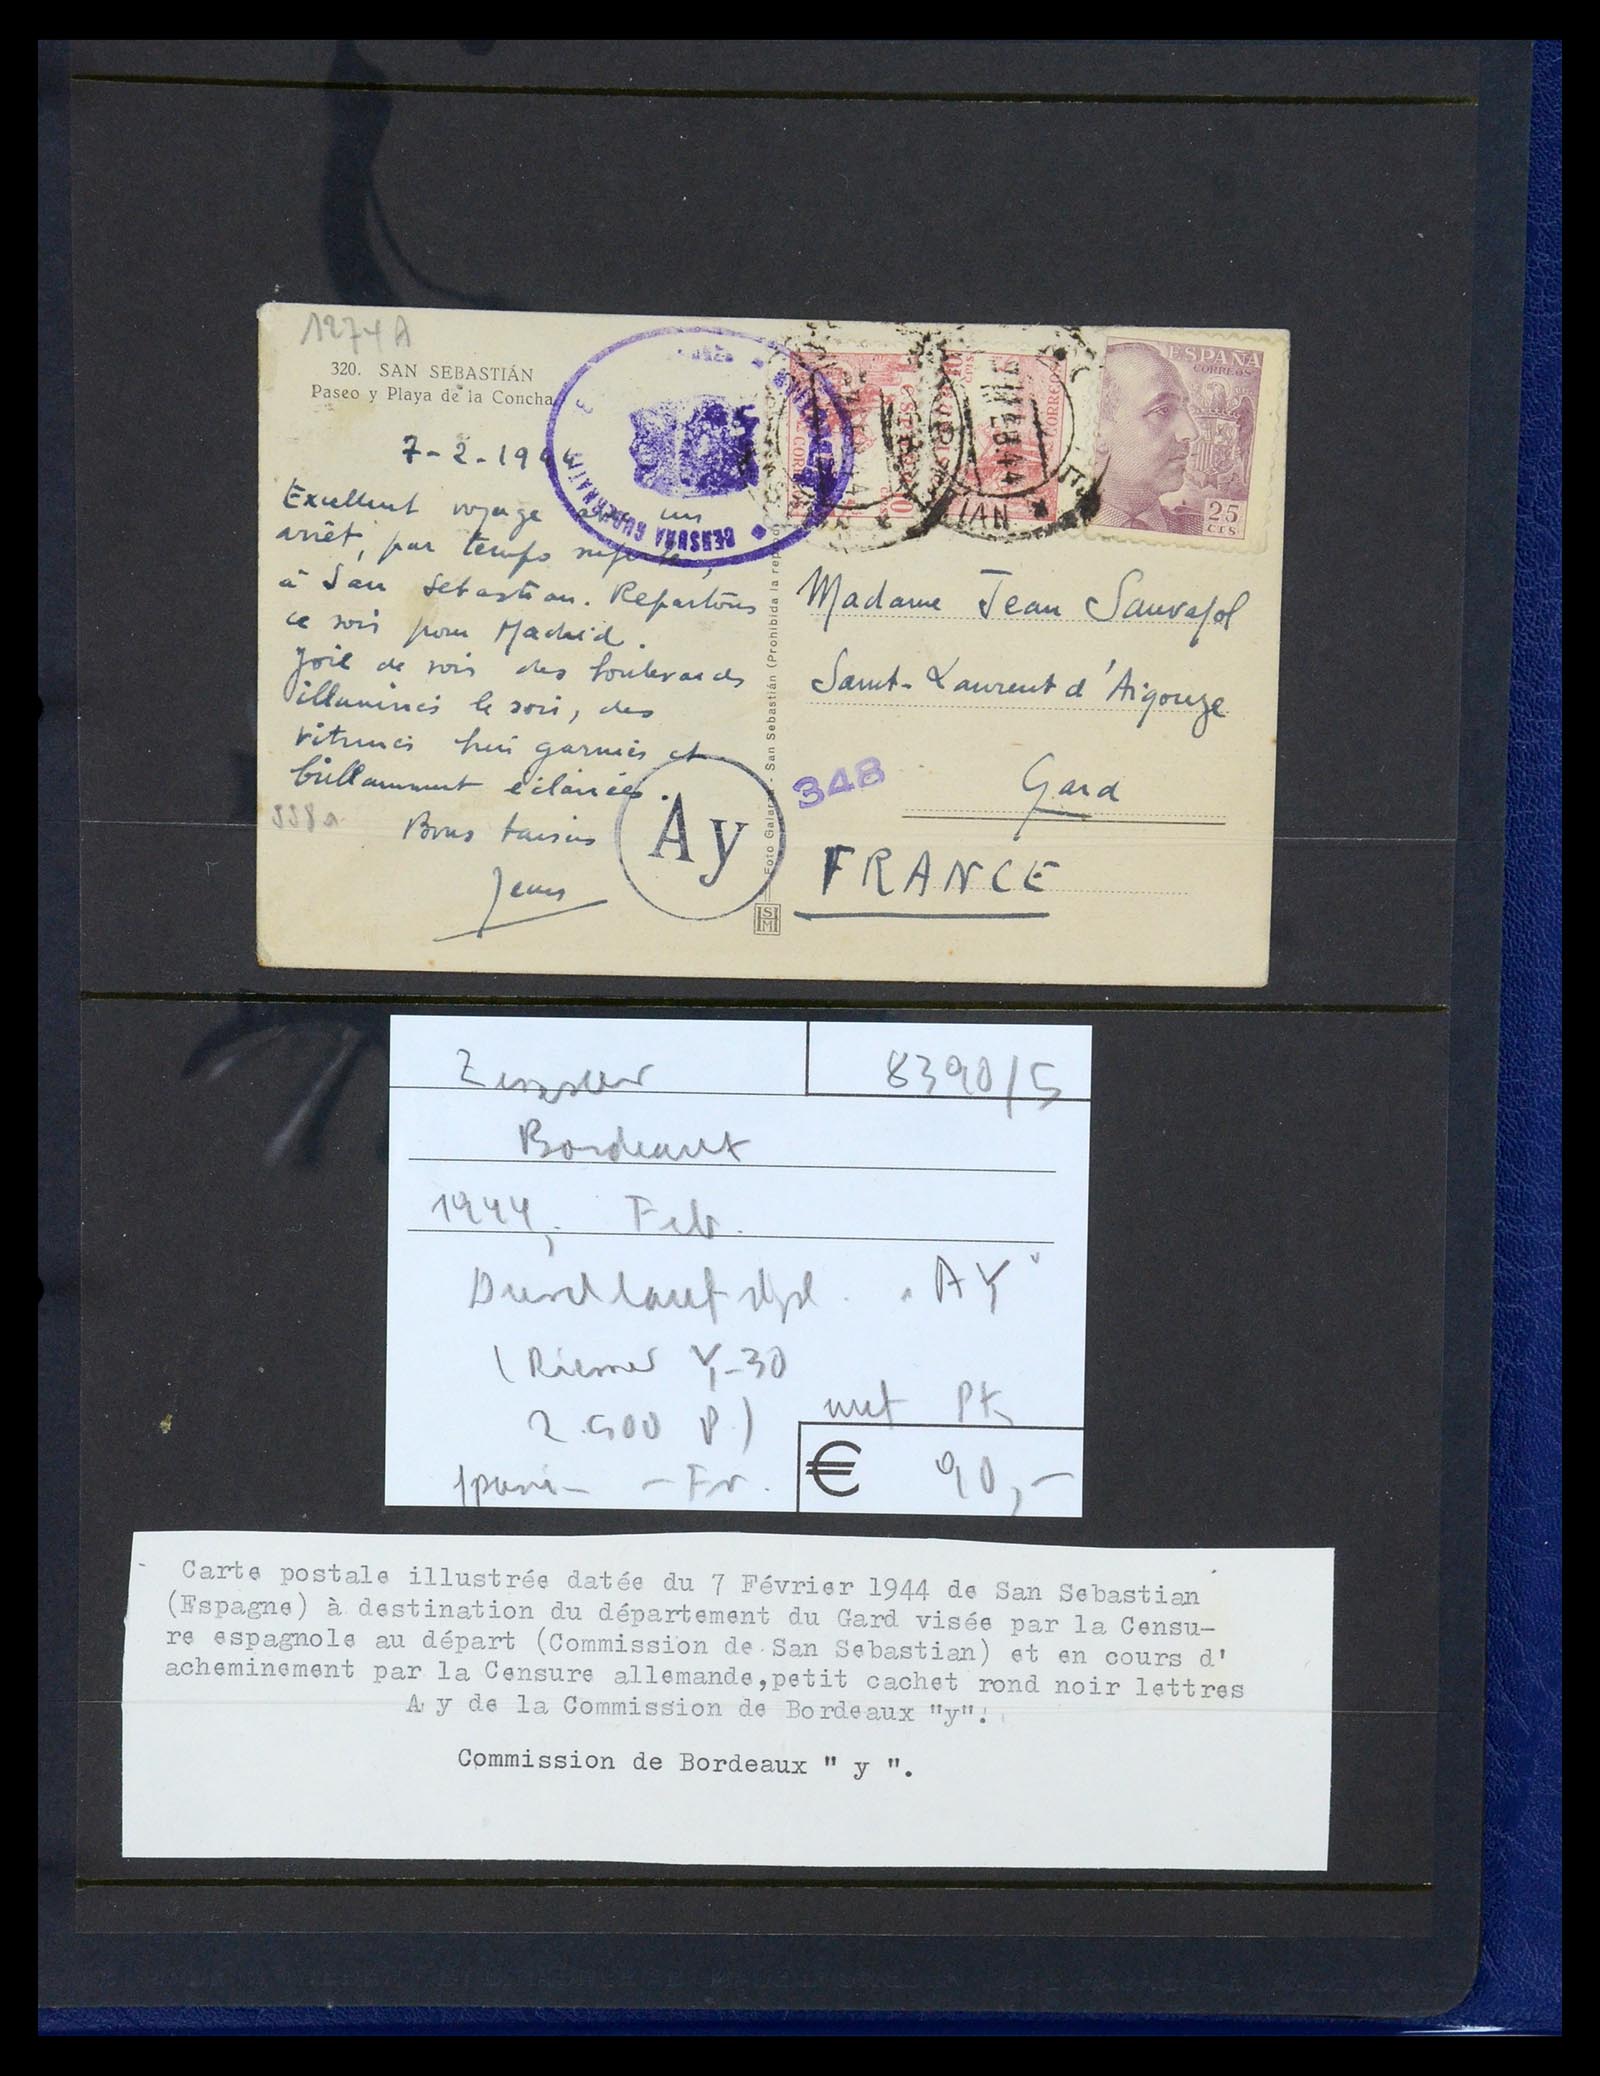 1274A
320. SAN SEBASTIÁN
Paseo y Playa de la Concha
7-2-1944
Excellent voyage un
arrêt, par temps
à San Sebastian. Repartons
ce soir pour Madrid.
Joie de voir des boulevards
illuminés le soir, des
vitrines bien garnies et
brillamment éclairées.
338a
Bons baisers
CENSURA GUBERNATIVA
CORREOS
ESPAÑA
CORREOS
25
CTS
Madame Jean Sauvajol
Saint-Laurent d'Aigouze
348
Gard
FRANCE
Ay
Foto Galarza - San Sebastián (Prohibida la repro
HSM
Zensur 8390/5
Bordeaux
1944, Feb.
Durchlaufstpl. "AY"
(Riemer Y-30
2.500 P.)
Span - Fr.
€ 90,-
Carte postale illustrée datée du 7 Février 1944 de San Sebastian
(Espagne) à destination du département du Gard visée par la Censu-
re espagnole au départ (Commission de San Sebastian) et en cours d'
acheminement par la Censure allemande,petit cachet rond noir lettres
A y de la Commission de Bordeaux "y".
Commission de Bordeaux " y ".